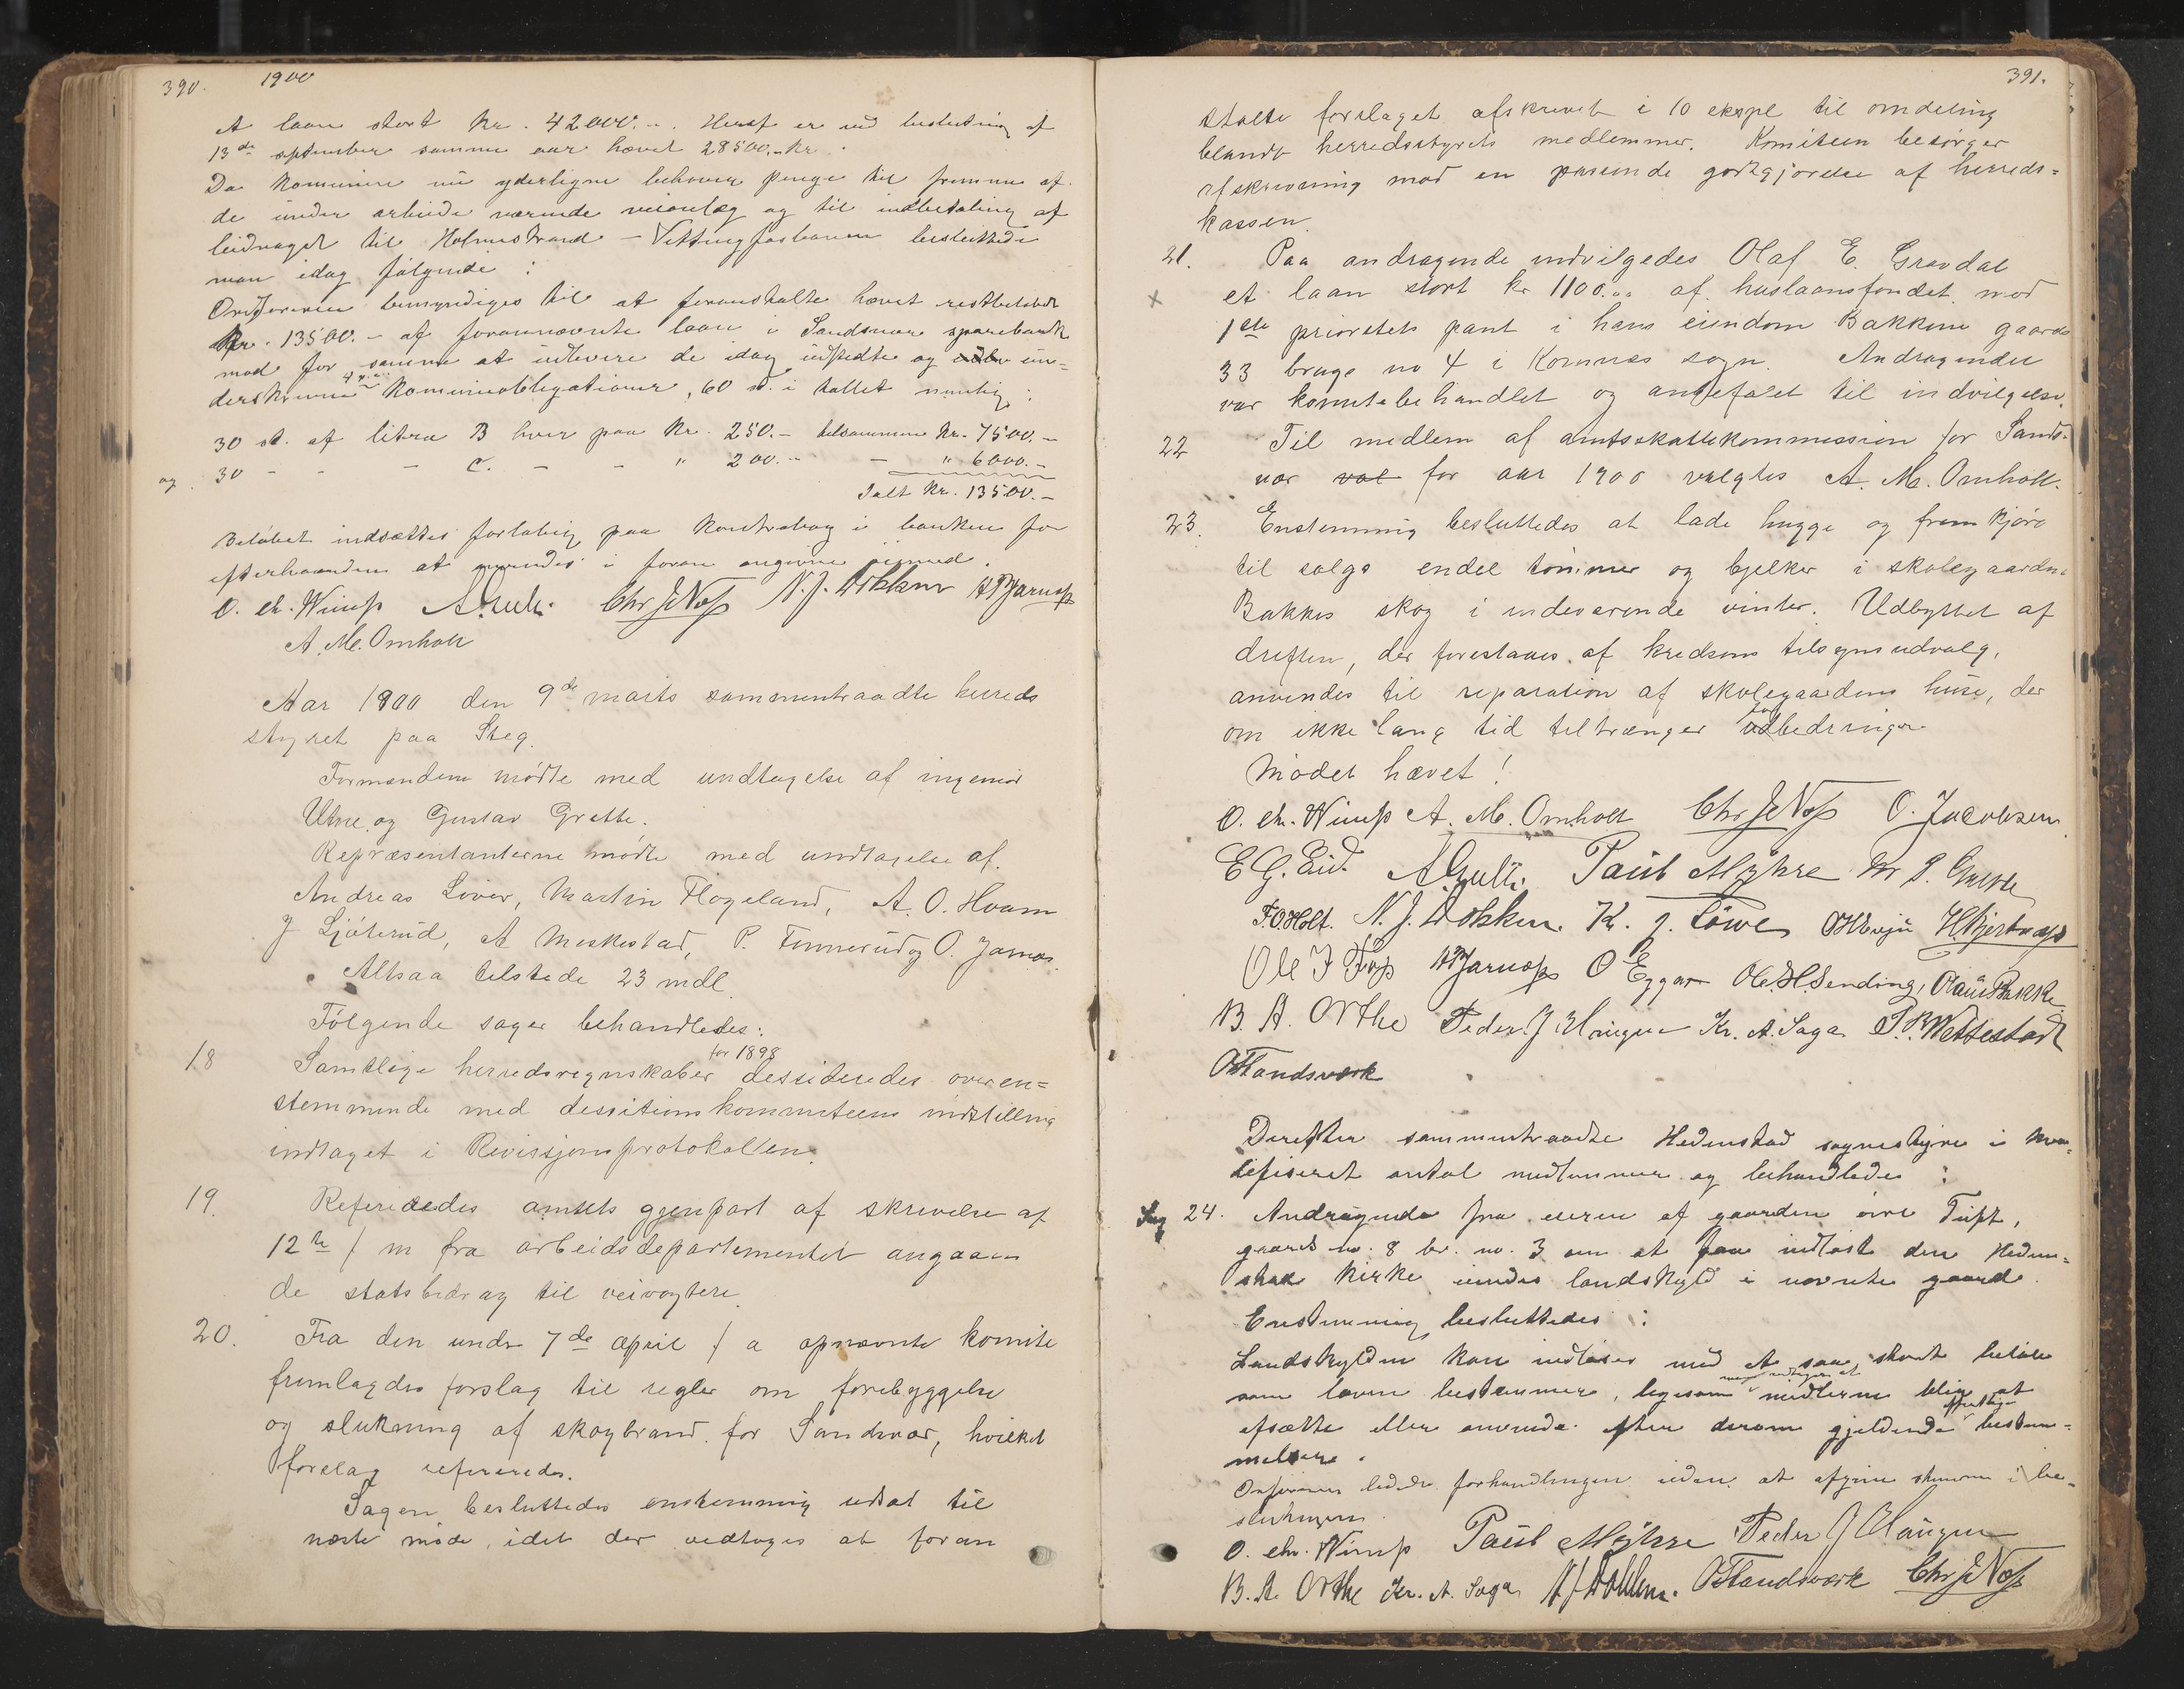 390. 1900
et laan stort kr. 42000.-. Heraf er ved beslutning af
13de september samme aar hævet 28500.- kr.
Da kommunen nu yderligere behøver penge til fremme af
de under arbeide værende veianlæg og til indbetaling af
bidraget til Holmestrand - Vittingfosbanen besluttede
man idag følgende :
Ordføreren bemyndiges til at foranstalte hævet restbeløbet
kr. 13500.- af forannævnte laan i Sandsvær sparebank
mod for samme at udlevere de idag udstedte og un=
derskrevne kommuneobligationer, 60 st. i tallet nemlig :
30 st. af litra B hver paa kr. 250.- tilsammen kr. 7500.-
og 30 - - - C. - - " 200.- - " 6000.-
Ialt kr. 13500.-
Beløbet indsættes foreløbig paa kontrabog i banken for
efterhaanden at anvendes i foran angivne øiemed.
O. Chr. Wimp Chr J Næss N. J. Dokken H Bjarnæss
A. M. Omholt
Aar 1900 den 9de marts sammentraadte herreds
styret paa Steg.
Formændene mødte med undtagelse af ingeniør
Utne og Gustav Grette.
Repræsentanterne mødte med undtagelse af
Andreas Løver, Martin Flogeland, A. O. Hvam
J Ljøterud, A Meskestad, P. Finnerud og O. Jarnæs.
Altsaa tilstede 23 mdl.
Følgende sager behandledes:
18 Samtlige herredsregnskaber for 1898 dessideredes overen=
stemmende med dessitionskommiteens indstilling
indtaget i Revissjonsprotokollen.
19. Refereredes amtets gjenpart af skrivelse af
12te / m fra arbeidsdepartementet angaaen
de statsbidrag til veivogtere.
20. Fra den under 7de april / a opnævnte komite
fremlagdes forslag til regler om forebyggelse
og slukning af skogbrand for Sandsvær, hvilket
forslag refereredes.
Sagen besluttedes enstemmig udsat til
næste møde, idet der vedtoges at foran
391.
stalte forslaget afskrevet i 10 ekspl til omdeling
blandt herredsstyrets medlemmer. Komiteen besørger
afskrivning mod en passende godtgjørelse af herreds=
kassen.
21. Paa andragende indvilgedes Olaf E. Gravdal
x et laan stort kr 1100.,, af huslaansfondet mod
1ste prioritets pant i hans eiendom Bakkene gaards
33 brugs no 4 i Komnes sogn. Andragendet
var komitebehandlet og anbefalet til indvilgelse.
22 Til medlem af amtsskattekommission for Sands=
vær val for aar 1900 valgtes A. M. Omholt.
23. Enstemmig besluttedes at lade hugge og fremkjøre
til salgs endel tømmer og bjelker i skolegaarden
Bakkes skog i indeværende vinter. Udbyttet af
driften, der forestaaes af kredsens tilsynsudvalg,
anvendes til reparation af skolegaardens huse, der
om ikke lang tid tiltrænger udbedringer
Mødet hævet !
O. Chr. Wimp A. M. Omholt Chr J Næss O. Jacobsen
E G. Eid. Paul Myhre
F.O Holt. N. J. Dokken. K. J. Løwe
Ole J Foss H Bjarnæss O Eggar Ole H. Sending, Olaus Bakke
B. A. Orthe Peder J Haugen Kr. A. Saga P. P. Wettestad
O Tandsværk
Derefter sammentraadte Hedenstad sognestyre i kva=
lifiseret antal medlemmer og behandlede :
Sag 24. Andragende fra eieren af gaarden øvre Tuft,
gaards no. 8 br. no. 3 om at faa indløst den Heden=
stad kirke eiendes landskyld i nævnte gaard.
Enstemmig besluttedes :
Landskylden kan indløses med et saa stort beløb
som loven bestemmer, ligesom midlerne blir at
afsætte eller anvende efter derom gjeldende bestem=
melser.
Ordføreren ledede forhandlingen uden at afgive stemme i be=
slutningen.
O. Chr. Wimp Paul Myhre Peder J Haugen
B. A. Orthe Kr. A. Saga N J Dokken. O Tandsværk Chr J Næss